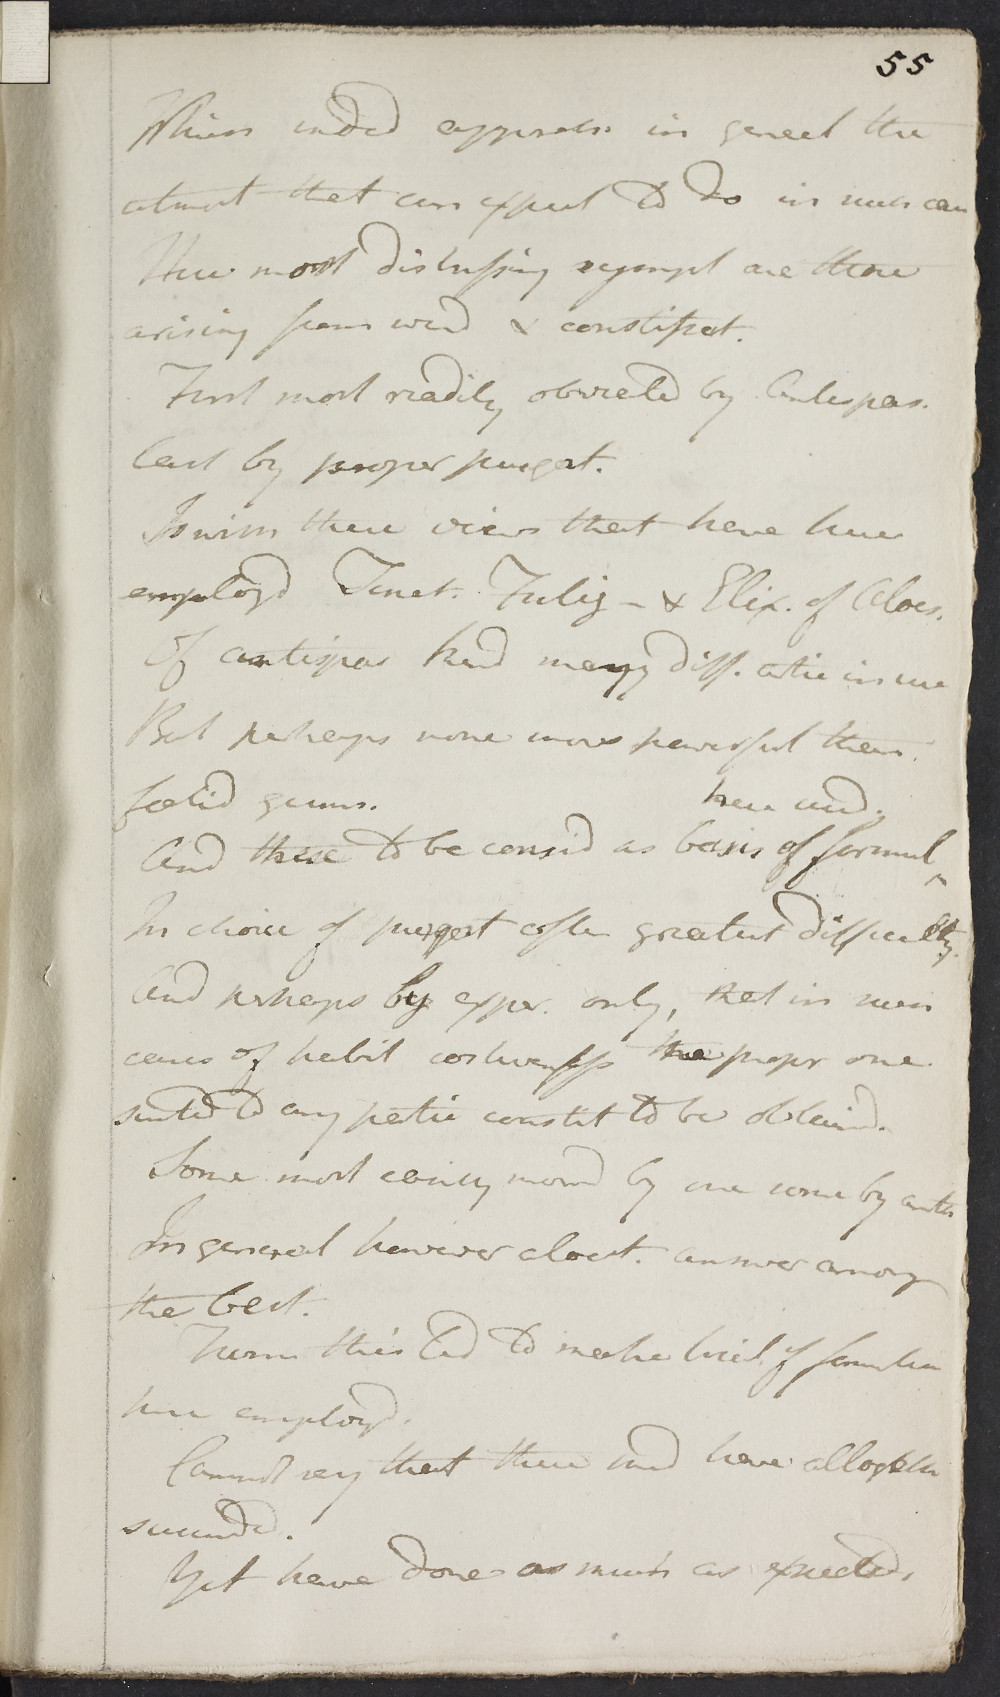 55
Which indeed appears in general the
utmost that can expect to do in such case
The most distressing sympt are those
arising from wind & constipat.
First most readily obviated by Antispas.
Last by proper purgat.
It is with these views that have here
employd Tinct. Fulig - & Elix. of Aloes.
Of antispas had many diff. also in use
But perhaps none more powerful than
foetid gums. here used.
And these to be consid as basis of formul
In choice of purgat often greatest difficulty.
And perhaps by exper. only, that in such
cases of habit costiveness the propr one
suited to any partic constit to be obtaind.
Some most easily movd by one some by anoth
In general however aloet. answer among
the best.
From this led to make trial of formulae
here employd.
Cannot say that these had here altogether
succeeded.
Yet have done as much as expected.